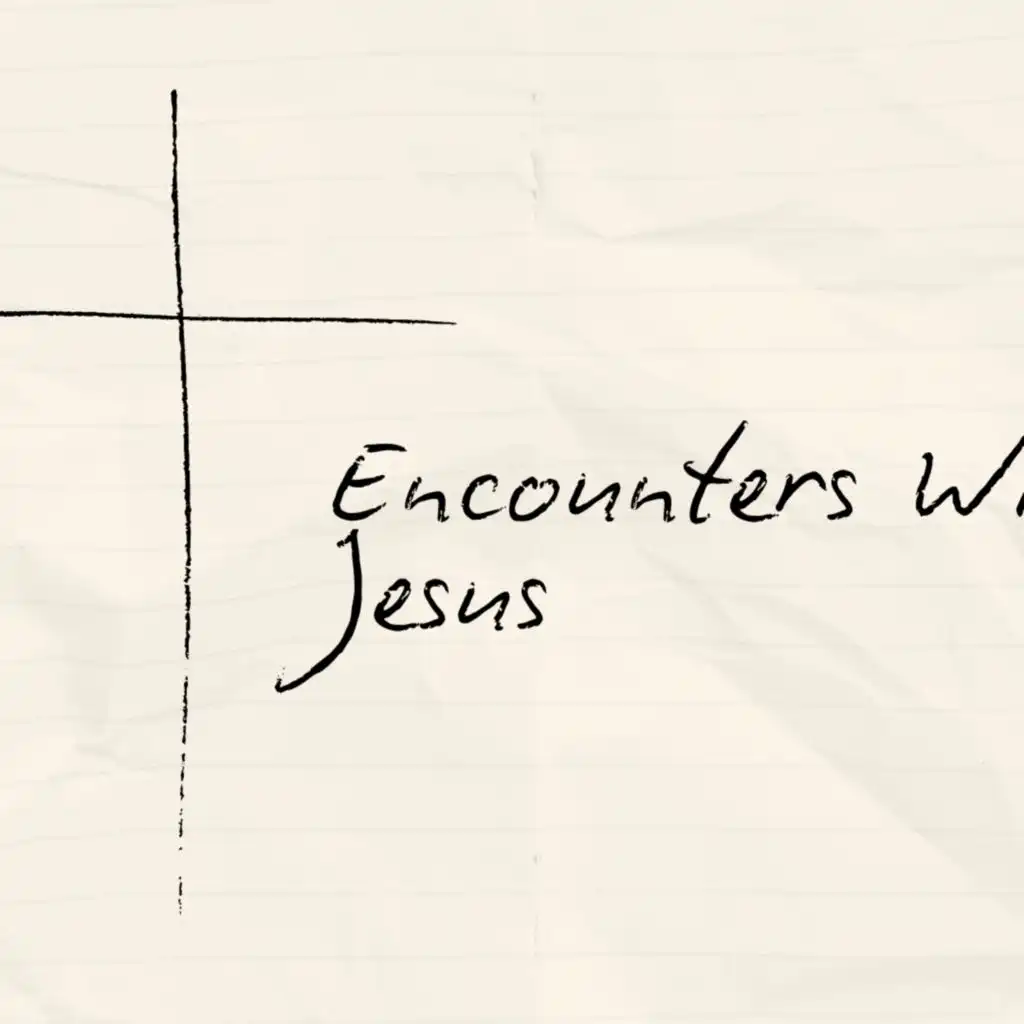 Encounters Wi
Jesus